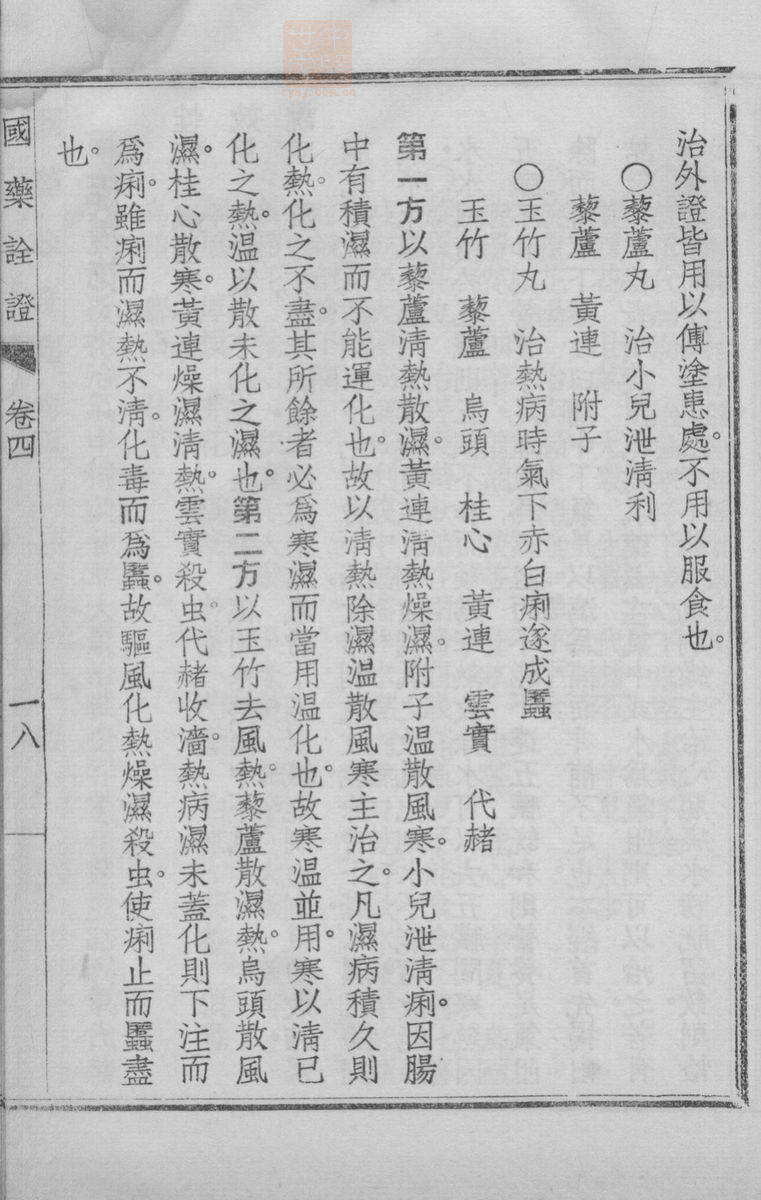 治外證皆用以傅塗患處。不用以服食也。
〇藜蘆丸　治小兒泄淸利
藜蘆　黃連　附子
〇玉竹丸　治熱病時氣下赤白痢遂成䘌
玉竹　藜蘆　烏頭　桂心　黃連　雲實　代赭
第一方以藜蘆淸熱散濕。黃連淸熱燥濕。附子温散風寒。小兒泄淸痢。因腸
中有積濕而不能運化也。故以淸熱除濕温散風寒主治之。凡濕病積久則
化熱。化之不盡。其所餘者必爲寒濕而當用温化也。故寒温並用。寒以淸已
化之熱。温以散未化之濕也。第二方以玉竹去風熱。藜蘆散濕熱。烏頭散風
濕。桂心散寒。黃連燥濕淸熱。雲實殺虫。代赭收濇。熱病濕未蓋化則下注而
爲痢。雖痢而濕熱不淸。化毒而爲䘌。故驅風化熱燥濕殺虫。使痢止而䘌盡
也。
國藥詮證
卷四
一八